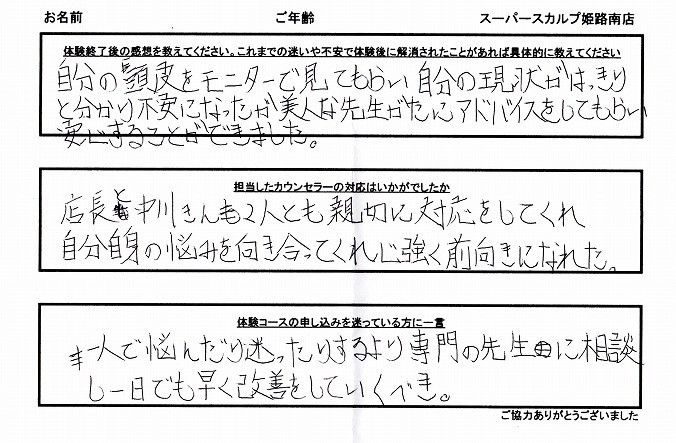 お名前 ご年齢 スーパースカルプ姫路南店
体験終了後の感想を教えてください。これまでの迷いや不安で体験後に解消されたことがあれば具体的に教えてください
自分の頭皮をモニターで見てもらい 自分の現状がはっきり
と分かり不安になったが美人な先生がたにアドバイスをしてもらい
安心することができました。
担当したカウンセラーの対応はいかがでしたか
店長と中川さんも2人とも親切に対応をしてくれ
自分自身の悩みを向き合ってくれ心強く前向きになれた。
体験コースの申し込みを迷っている方に一言
一人で悩んだり迷ったりするより専門の先生に相談
し一日でも早く改善をしていくべき。
ご協力ありがとうございました